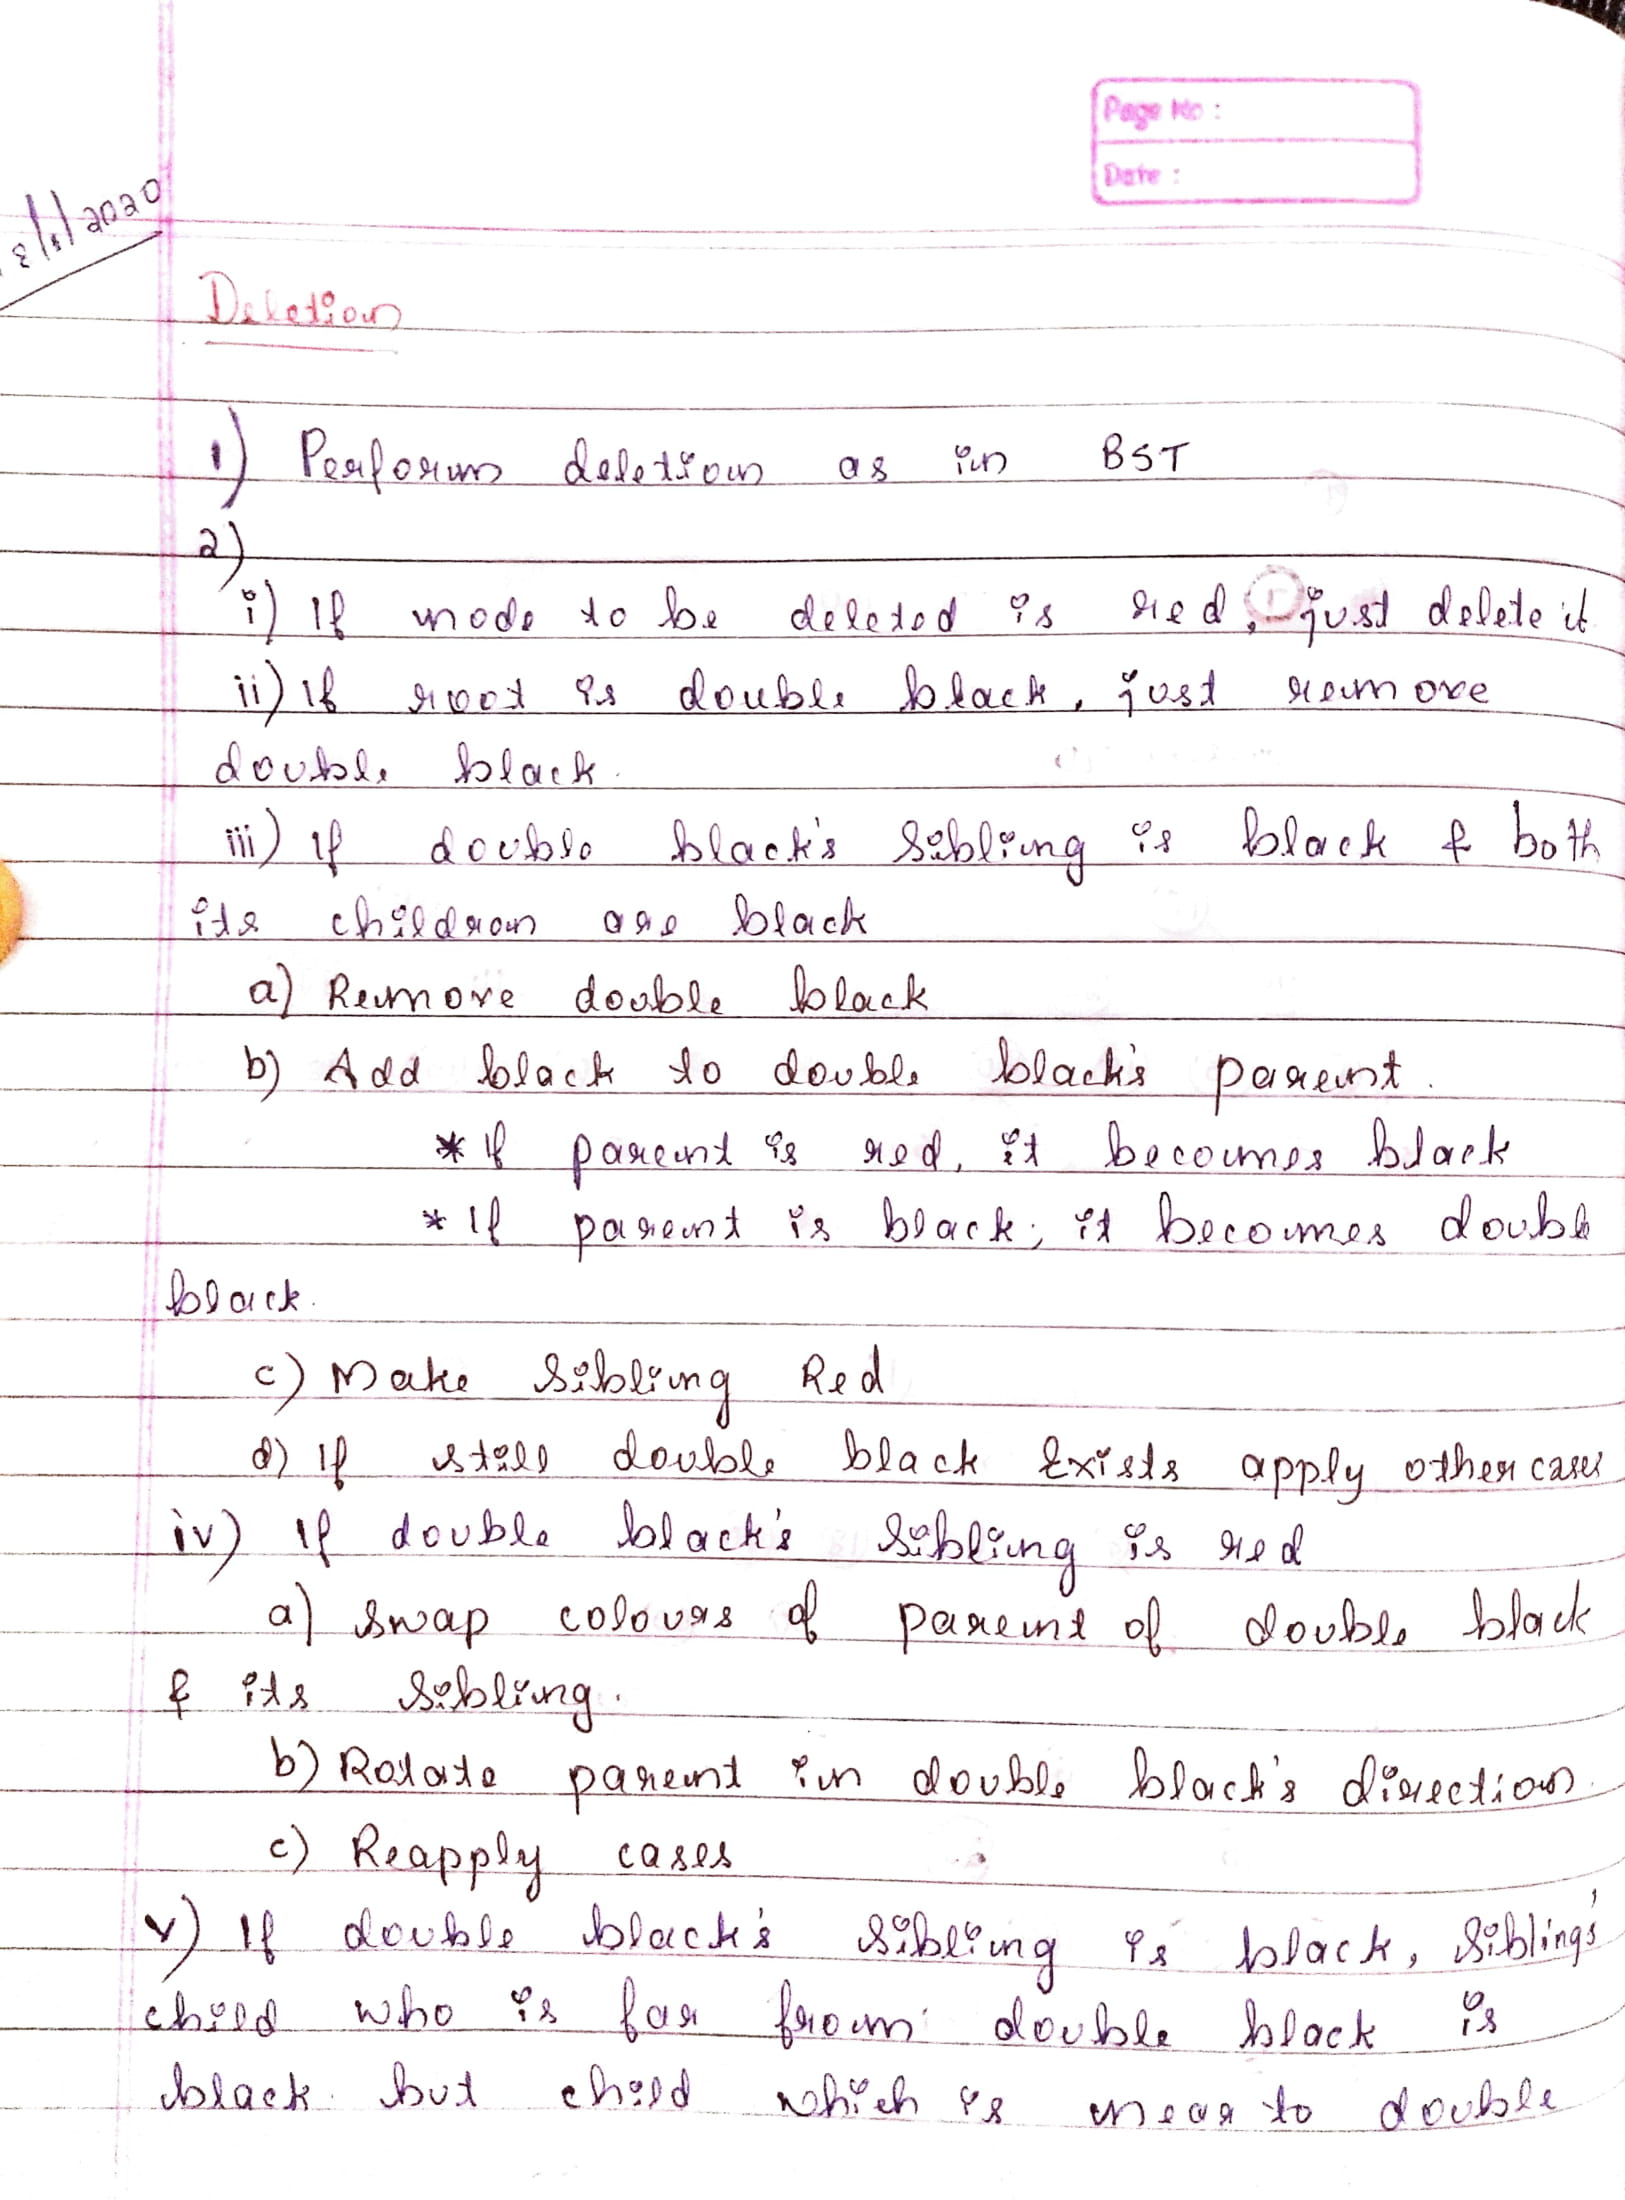 Page No :
Date :
8/5/2020
Deletion
1) Perform deletion as in BST
2)
i) If node to be deleted is red, just delete it
ii) If root is double black, just remove
double black.
iii) If double black's sibling is black & both
its children are black
a) Remove double black
b) Add black to double black's parent.
* If parent is red, it becomes black
* If parent is black, it becomes double
black.
c) Make sibling Red
d) If still double black exists apply other cases
iv) If double black's sibling is red
a) swap colours of parent of double black
& its sibling.
b) Rotate parent in double black's direction.
c) Reapply cases
v) If double black's sibling is black, siblings'
child who is far from double black is
black but child which is near to double